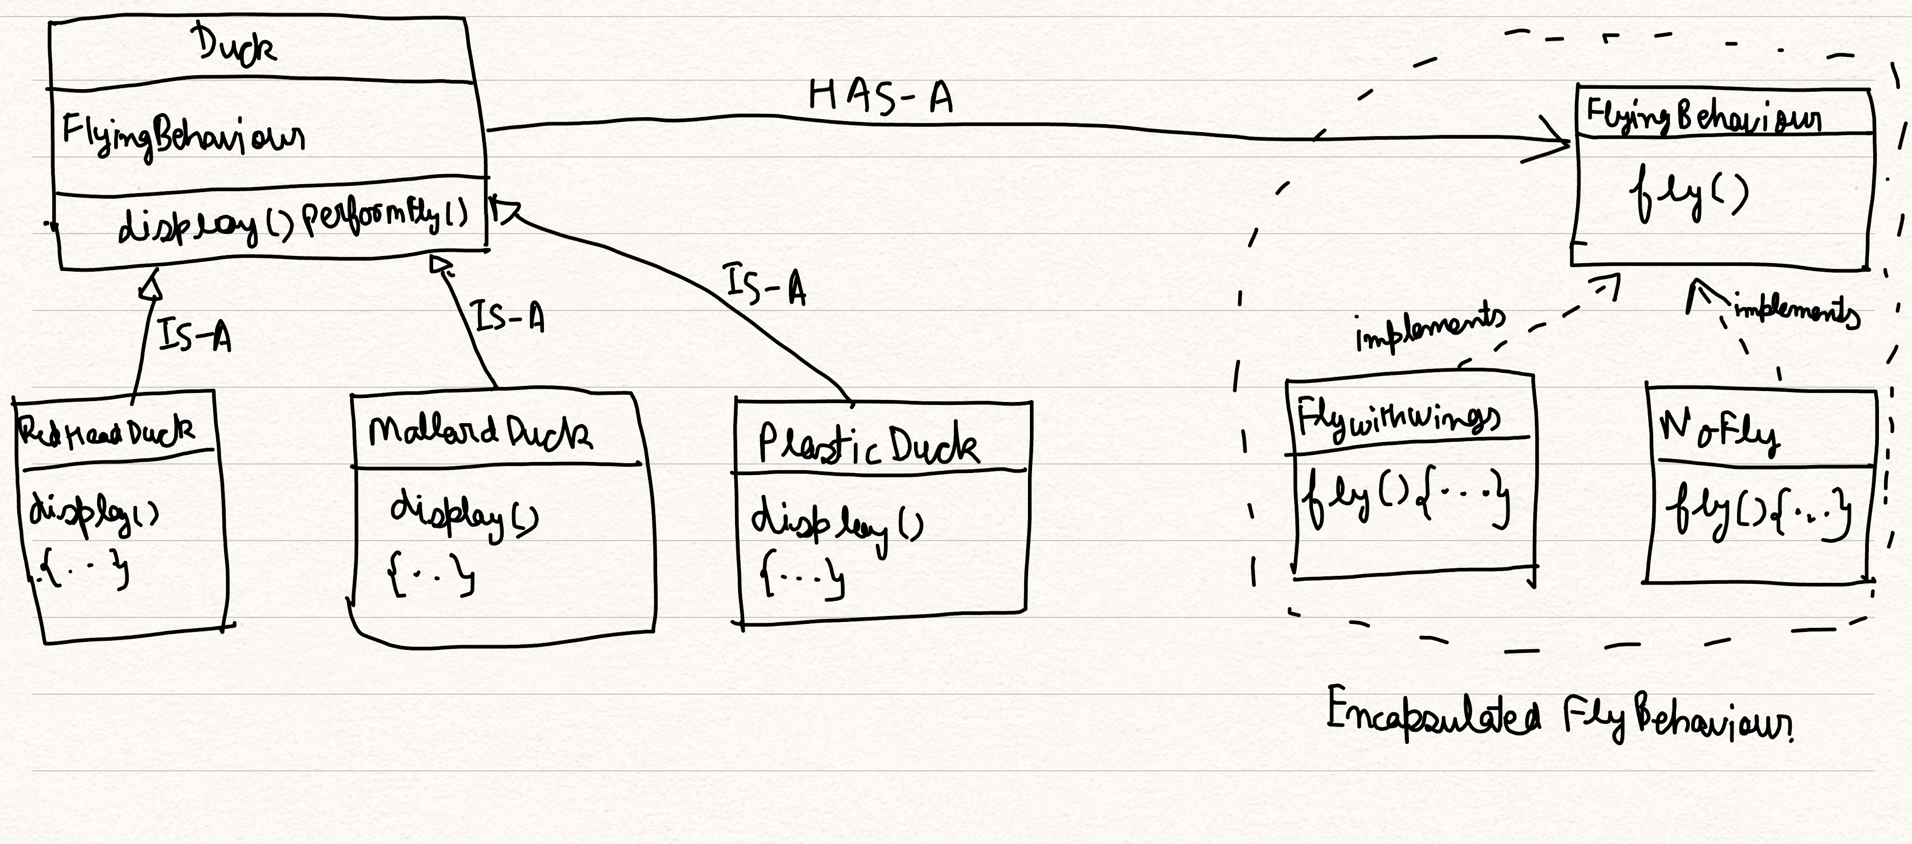 Duck
FlyingBehaviour
display() performFly()
HAS-A
FlyingBehaviour
fly()
IS-A
IS-A
IS-A
implements
implements
RedHeadDuck
display()
{...}
MallardDuck
display()
{...}
PlasticDuck
display()
{...}
Flywithwings
fly(){...}
NoFly
fly(){...}
Encapsulated FlyBehaviour.